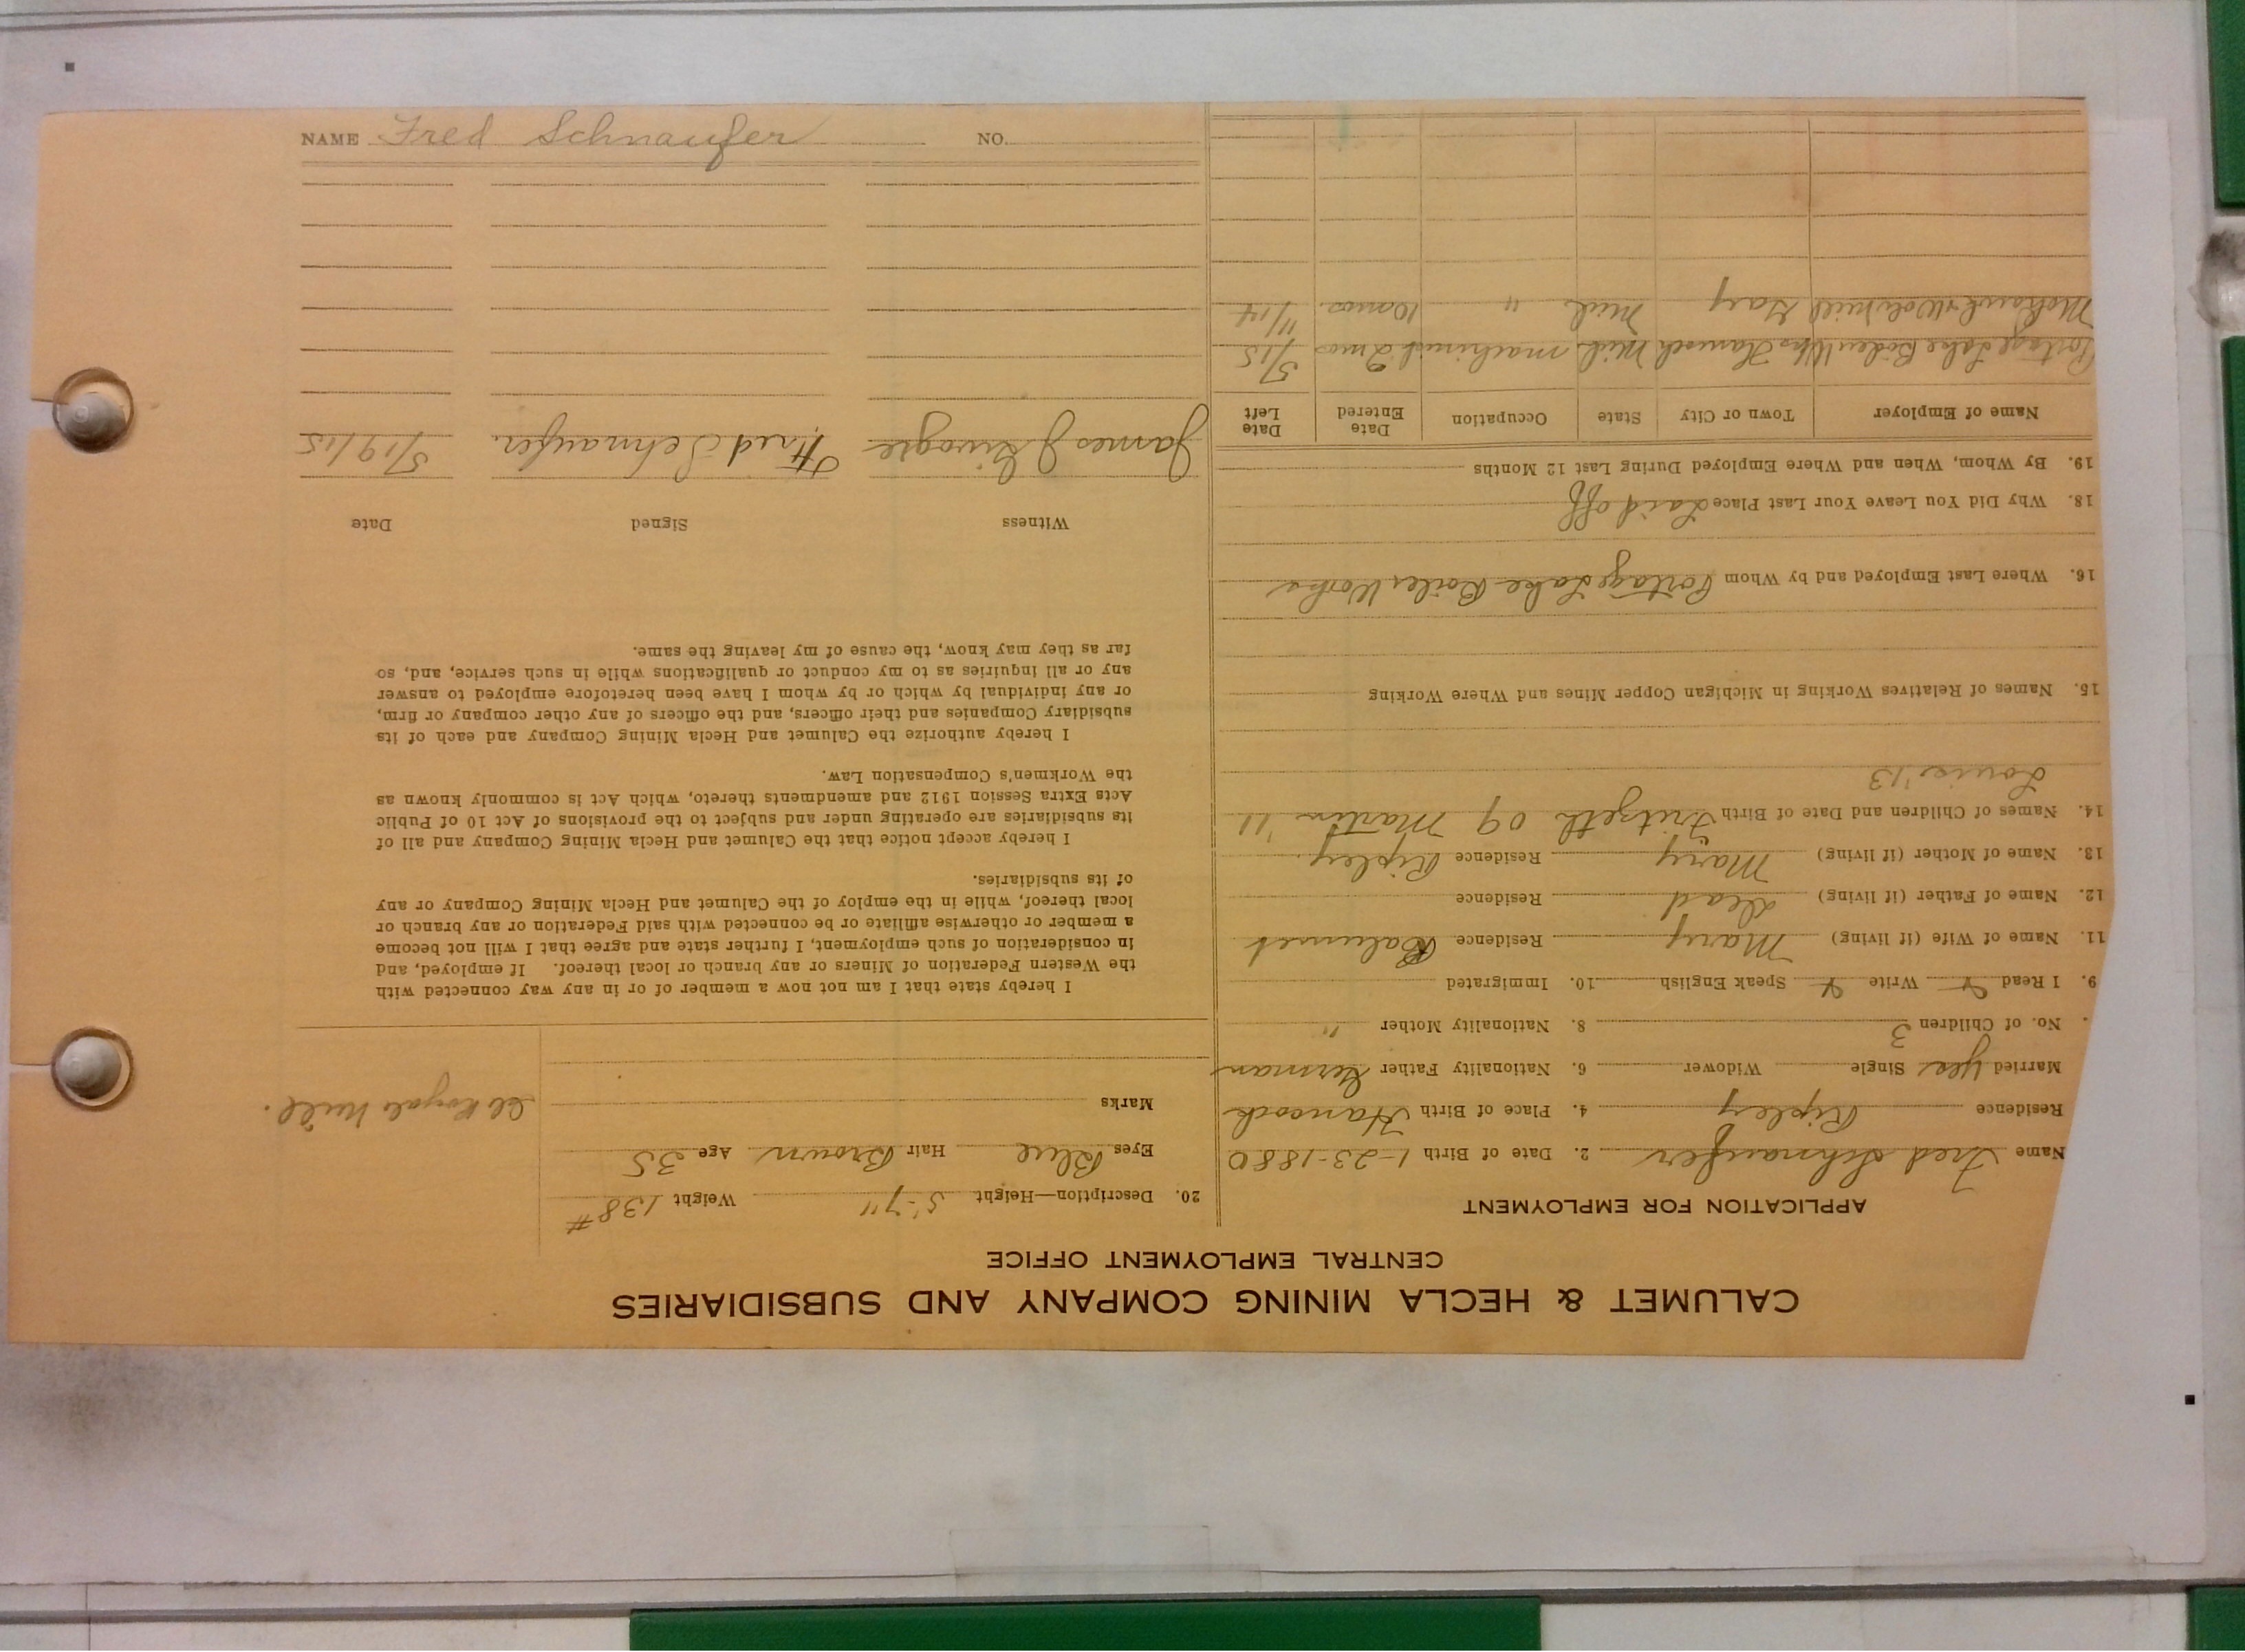 CALUMET & HECLA MINING COMPANY AND SUBSIDIARIES
CENTRAL EMPLOYMENT OFFICE
APPLICATION FOR EMPLOYMENT
Name Fred Schnaufer 2. Date of Birth 1-23-1880
Residence Ripley 4. Place of Birth Hancock
Married Yes Single Widower 6. Nationality Father German
. No. of Children 3 8. Nationality Mother "
9. I Read Y Write Y Speak English 10. Immigrated
11. Name of Wife (if living) Mary Residence Calumet
12. Name of Father (if living) Dead Residence
13. Name of Mother (if living) Mary Residence Ripley.
14. Names of Children and Date of Birth 09 Martin '11
Louis '13
15. Names of Relatives Working in Michigan Copper Mines and Where Working
16. Where Last Employed and by Whom Portage Lake Boiler Works
18. Why Did You Leave Your Last Place Laid off
19. By Whom, When and Where Employed During Last 12 Months
Name of Employer Town or City State Occupation Date Entered Date Left
Portage Lake Boiler Wks Hancock Mich machinist 2 mos 5/15
Mohawk + Mill Gay Mich " 10 mos. 11/14
20. Description—Height 5'-7" Weight 138#
Eyes Blue Hair Brown Age 35
Marks
Royale Mill.
I hereby state that I am not now a member of or in any way connected with
the Western Federation of Miners or any branch or local thereof. If employed, and
in consideration of such employment, I further state and agree that I will not become
a member or otherwise affiliate or be connected with said Federation or any branch or
local thereof, while in the employ of the Calumet and Hecla Mining Company or any
of its subsidiaries.
I hereby accept notice that the Calumet and Hecla Mining Company and all of
its subsidiaries are operating under and subject to the provisions of Act 10 of Public
Acts Extra Session 1912 and amendments thereto, which Act is commonly known as
the Workmen's Compensation Law.
I hereby authorize the Calumet and Hecla Mining Company and each of its
subsidiary Companies and their officers, and the officers of any other company or firm,
or any individual by which or by whom I have been heretofore employed to answer
any or all inquiries as to my conduct or qualifications while in such service, and, so
far as they may know, the cause of my leaving the same.
Witness Signed Date
James J Fred Schnaufer. 5/19/15
NAME Fred Schnaufer NO.